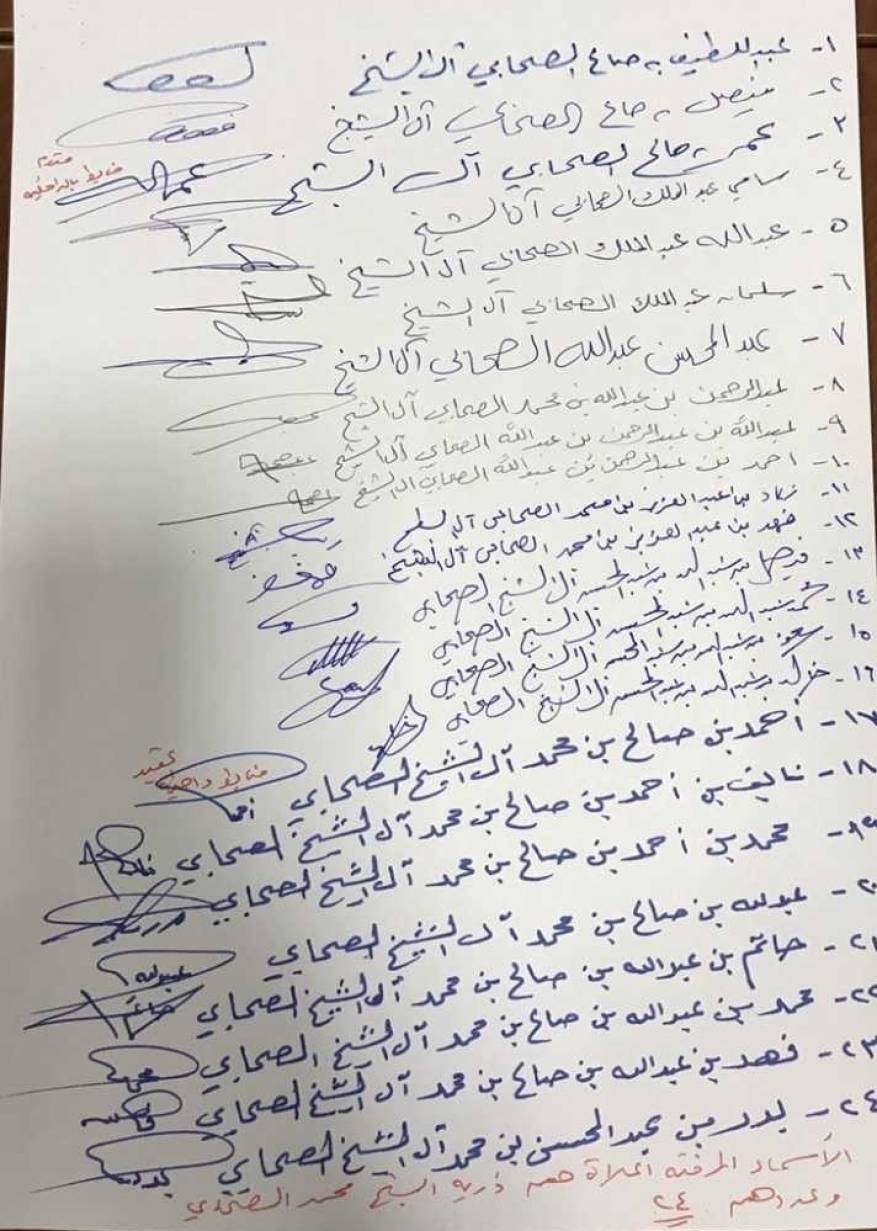 ١- عبداللطيف بن صالح الصحابي آل الشيخ
٢- فيصل بن صالح الصحابي آل الشيخ
٣- عمر بن صالح الصحابي آل الشيخ
مقدم
ضابط بالداخلية
٤- سامي عبد الملك الصحابي آل الشيخ
٥- عبدالله عبدالملك الصحابي آل الشيخ
٦- سلمان عبد الملك الصحابي آل الشيخ
٧- عبدالمحسن عبدالله الصحابي آل الشيخ
٨- عبدالرحمن بن عبدالله بن محمد الصحابي آل الشيخ
٩- عبدالله بن عبدالرحمن بن عبدالله الصحابي آل الشيخ
١٠- احمد بن عبدالرحمن بن عبدالله الصحابي آل الشيخ
١١- زياد بن عبدالعزيز بن محمد الصحابي آل الشيخ
١٢- فهد بن عبدالعزيز بن محمد الصحابي آل الشيخ
١٣- فيصل بن عبدالله بن عبدالمحسن آل الشيخ الصحابي
١٤- محمد بن عبدالله بن عبدالمحسن آل الشيخ الصحابي
١٥- سعود بن عبدالله بن عبدالمحسن آل الشيخ الصحابي
١٦- بن عبدالله بن عبدالمحسن آل الشيخ الصحابي
١٧- أحمد بن صالح بن محمد آل الشيخ الصحابي
عقيد
ضابط داخلية
١٨- نايف بن أحمد بن صالح بن محمد آل الشيخ الصحابي
١٩- محمد بن أحمد بن صالح بن محمد آل الشيخ الصحابي
٢٠- عبدالله بن صالح بن محمد آل الشيخ الصحابي
٢١- حاتم بن عبدالله بن صالح بن محمد آل الشيخ الصحابي
٢٢- محمد بن عبدالله بن صالح بن محمد آل الشيخ الصحابي
٢٣- فهد بن عبدالله بن صالح بن محمد آل الشيخ الصحابي
٢٤- بدر بن عبدالمحسن بن محمد آل الشيخ الصحابي
الأسماء المرفقة أعلاه هم ذرية الشيخ محمد الصحابي
وعددهم ٢٤